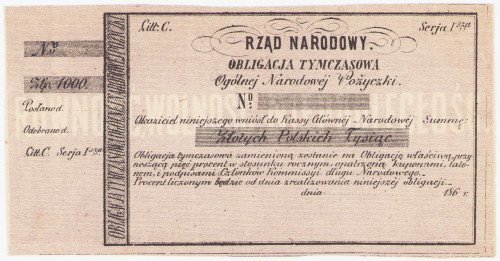 Litt: C.
Serja I szα
RZĄD NARODOWY.
OBLIGACJA TYMCZASOWA
Ogólnej Narodowej Pożyczki.
No
Okaziciel niniejszego wniósł do Kassy Głównej Narodowej Summę:
Złotych Polskich Tysiąc
Obligacja tymczasowa zamienioną zostanie na Obligację właściwą, przy-
noszącą pięć procent w stosunku rocznym, opatrzoną kuponami, talo-
nem, i podpisami Członków Kommissyi długu Narodowego.—
Procent liczonym będzie od dnia zrealizowania niniejszej obligacji.—
dnia 186 r.
No
Złp. 1000.
Posłano d.
Odebrano d.
Litt: C. Serja I
OBLIGACJA TYMCZASOWA OGÓLNEJ NARODOWEJ POŻYCZKI